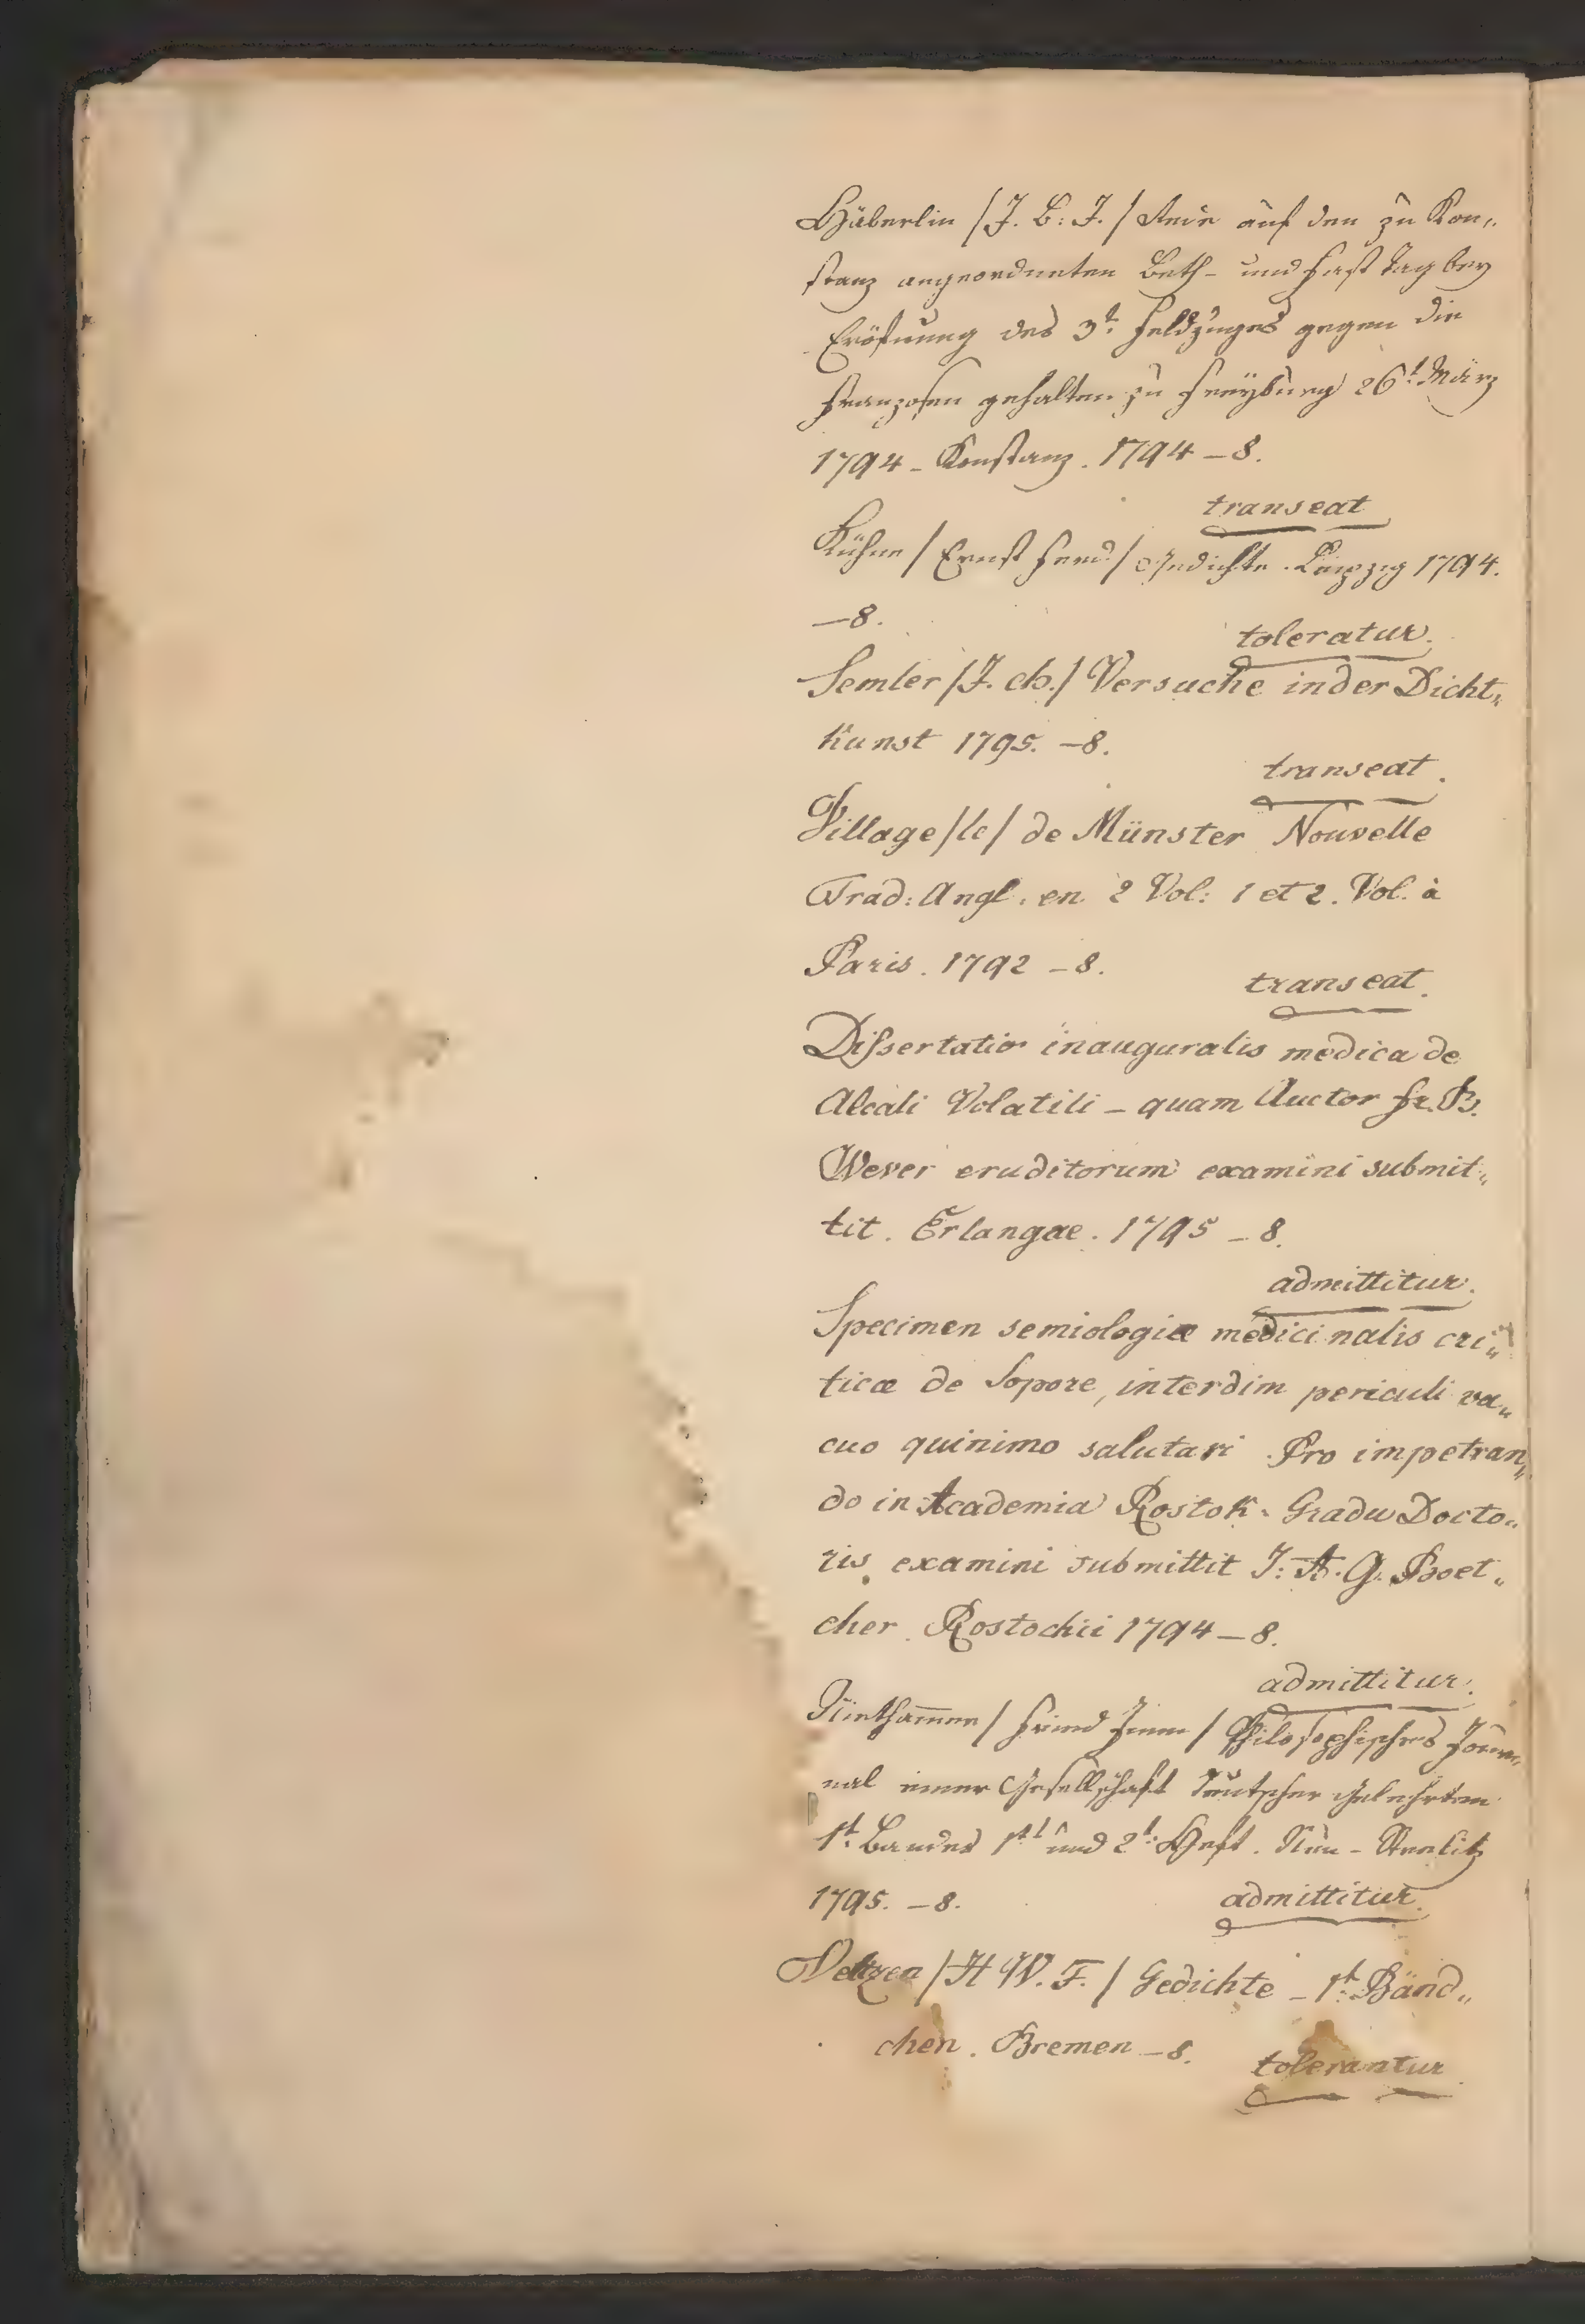 Häberlin /J. B: J./ Rede auf den zu Kon„
stanz angeordneten Beth- und Fast Tag bey
Eröfnung des 3t. Feldzuges gegen die
Franzosen gehalten zu Freÿburg 26t. März
1794 - Konstanz. 1794 - 8.
transeat
Kühne / Ernst Ferd / Gedichte. Leipzig 1794.
- 8.
toleratur.
Semler /J. Ch./ Versuche in der Dicht„
kunst 1795. - 8.
transeat.
Village /le/ de Münster Nouvelle
Trad: Angl. en 2 Vol: 1 et 2. Vol. à
Paris. 1792 - 8.
transeat.
Dissertatio inauguralis medica de
Alcali Volatili - quam Auctor Fr. B.
Wever eruditorum examini submit„
tit. Erlangae. 1795 - 8.
admittitur.
Specimen semiologiæ medicinalis cri„
ticæ de Sopore, interdim periculi va„
cuo quinimo salutari. Pro impetran„
do in Academia Rostok. Gradu Docto„
ris examini submittit J: A. G. Boet„
cher. Rostochii 1794 - 8.
admittitur.
Nietham̄er / Fried Imm / Philosophisches Jour„
nal einer Gesellschaft Teutscher Gelehrten
1t. Bandes 1tl und 2t: Heft. Neu - Strelitz
1795. - 8.
admittitur.
/H W. F./ Gedichte - 1t. Bänd„
chen. Bremen - 8.
tolerantur